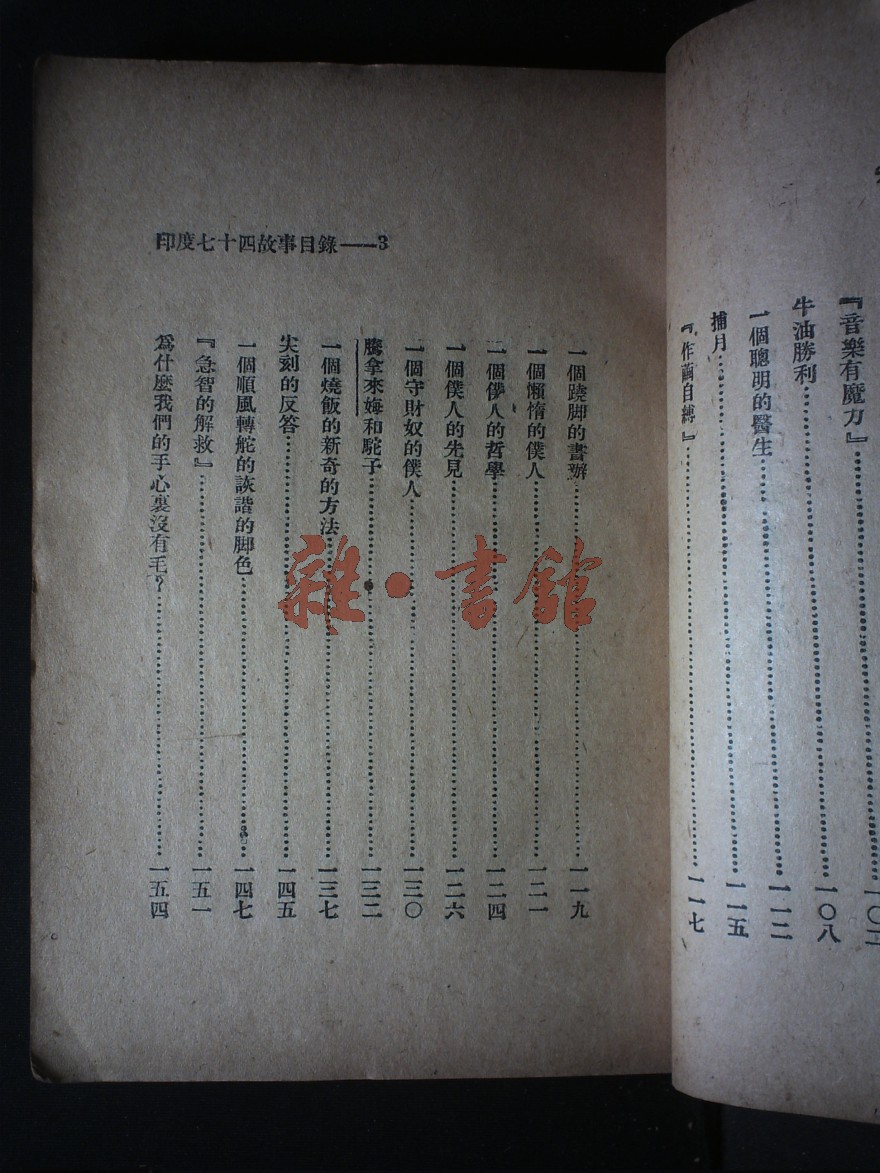 『音樂有魔力』
牛油勝利……一〇八
一個聰明的醫生……一一二
捕月……一一五
『作繭自縛』……一一七
印度七十四故事目錄——3
一個蹺脚的書辦……一一九
一個懶惰的僕人……一二一
一個僕人的哲學……一二四
一個僕人的先見……一二六
一個守財奴的僕人……一三〇
騰拿來姆和駝子……一三二
一個燒飯的新奇的方法……一三七
尖刻的反答……一四五
一個順風轉舵的詼諧的脚色……一四七
『急智的解救』……一五一
爲什麼我們的手心裏沒有毛？……一五四
雜·書館